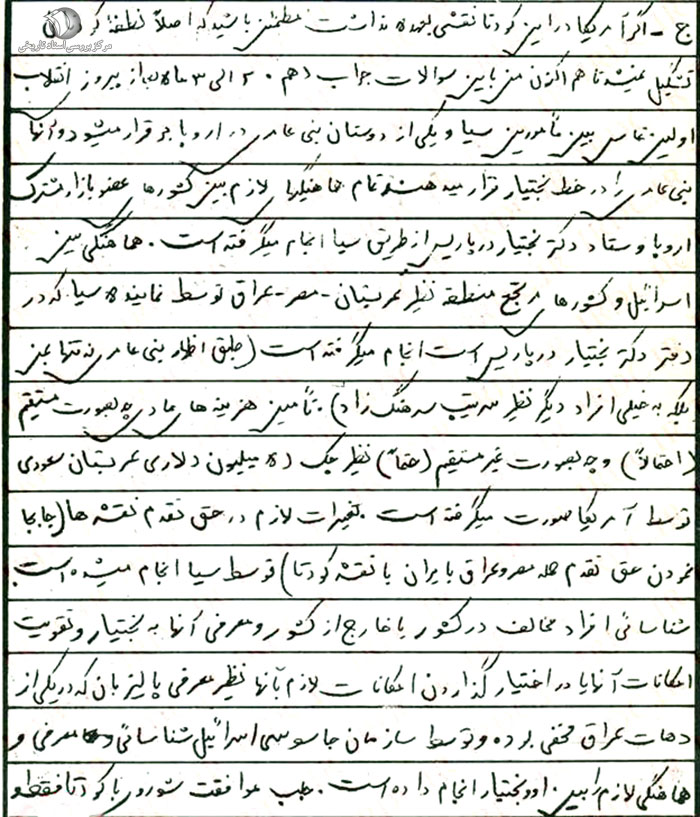 مرکز بررسی اسناد تاریخی
ج - اگر آمریکا در این کودتا نقشی بعهده نداشت مطمئن باشید که اصلاً نطفه
تشکیل نمیشد تا هم اکنون من باین سوالات جواب دهم . ۲ الی ۳ ماه بعد از پیروز انقلاب
اولین تماس بین مأمورین سیا و یکی از دوستان بنی عامری در اروپا برقرار میشود و آنها
بنی عامری را در خط بختیار قرار میدهند تمام هماهنگیهای لازم بین کشورهای عضو بازار مشترک
اروپا و ستاد دکتر بختیار در پاریس از طریق سیا انجام میگرفته است . هماهنگی بین
اسرائیل و کشورهای مرتجع منطقه نظیر عربستان - مصر - عراق توسط نماینده سیا که در
دفتر دکتر بختیار در پاریس است انجام میگرفته است (طبق اظهار بنی عامری نه تنها بمن
بلکه به خیلی افراد دیگر نظیر سرتیپ سرهنگ زاد) . تأمین هزینه های مادی چه بصورت مستقیم
(احتمالاً) و چه بصورت غیر مستقیم (حتماً) نظیر چک ۵۰ میلیون دلاری عربستان سعودی
توسط آمریکا صورت میگرفته است . تغییرات لازم در حق تقدم نقشه ها (جابجا
نمودن حق تقدم حمله مصر و عراق بایران با نقشه کودتا) توسط سیا انجام میشده است
شناسائی افراد مخالف در کشور یا خارج از کشور و معرفی آنها به بختیار و تقویت
امکانات آنها یا در اختیار گذاردن امکانات لازم بآنها نظیر معرفی پالیزبان که در یکی از
دهات عراق مخفی بوده و توسط سازمان جاسوسی اسرائیل شناسائی و معرفی و
هماهنگی لازم را بین او و بختیار انجام داده است . جلب موافقت شوروی با کودتا فقط و